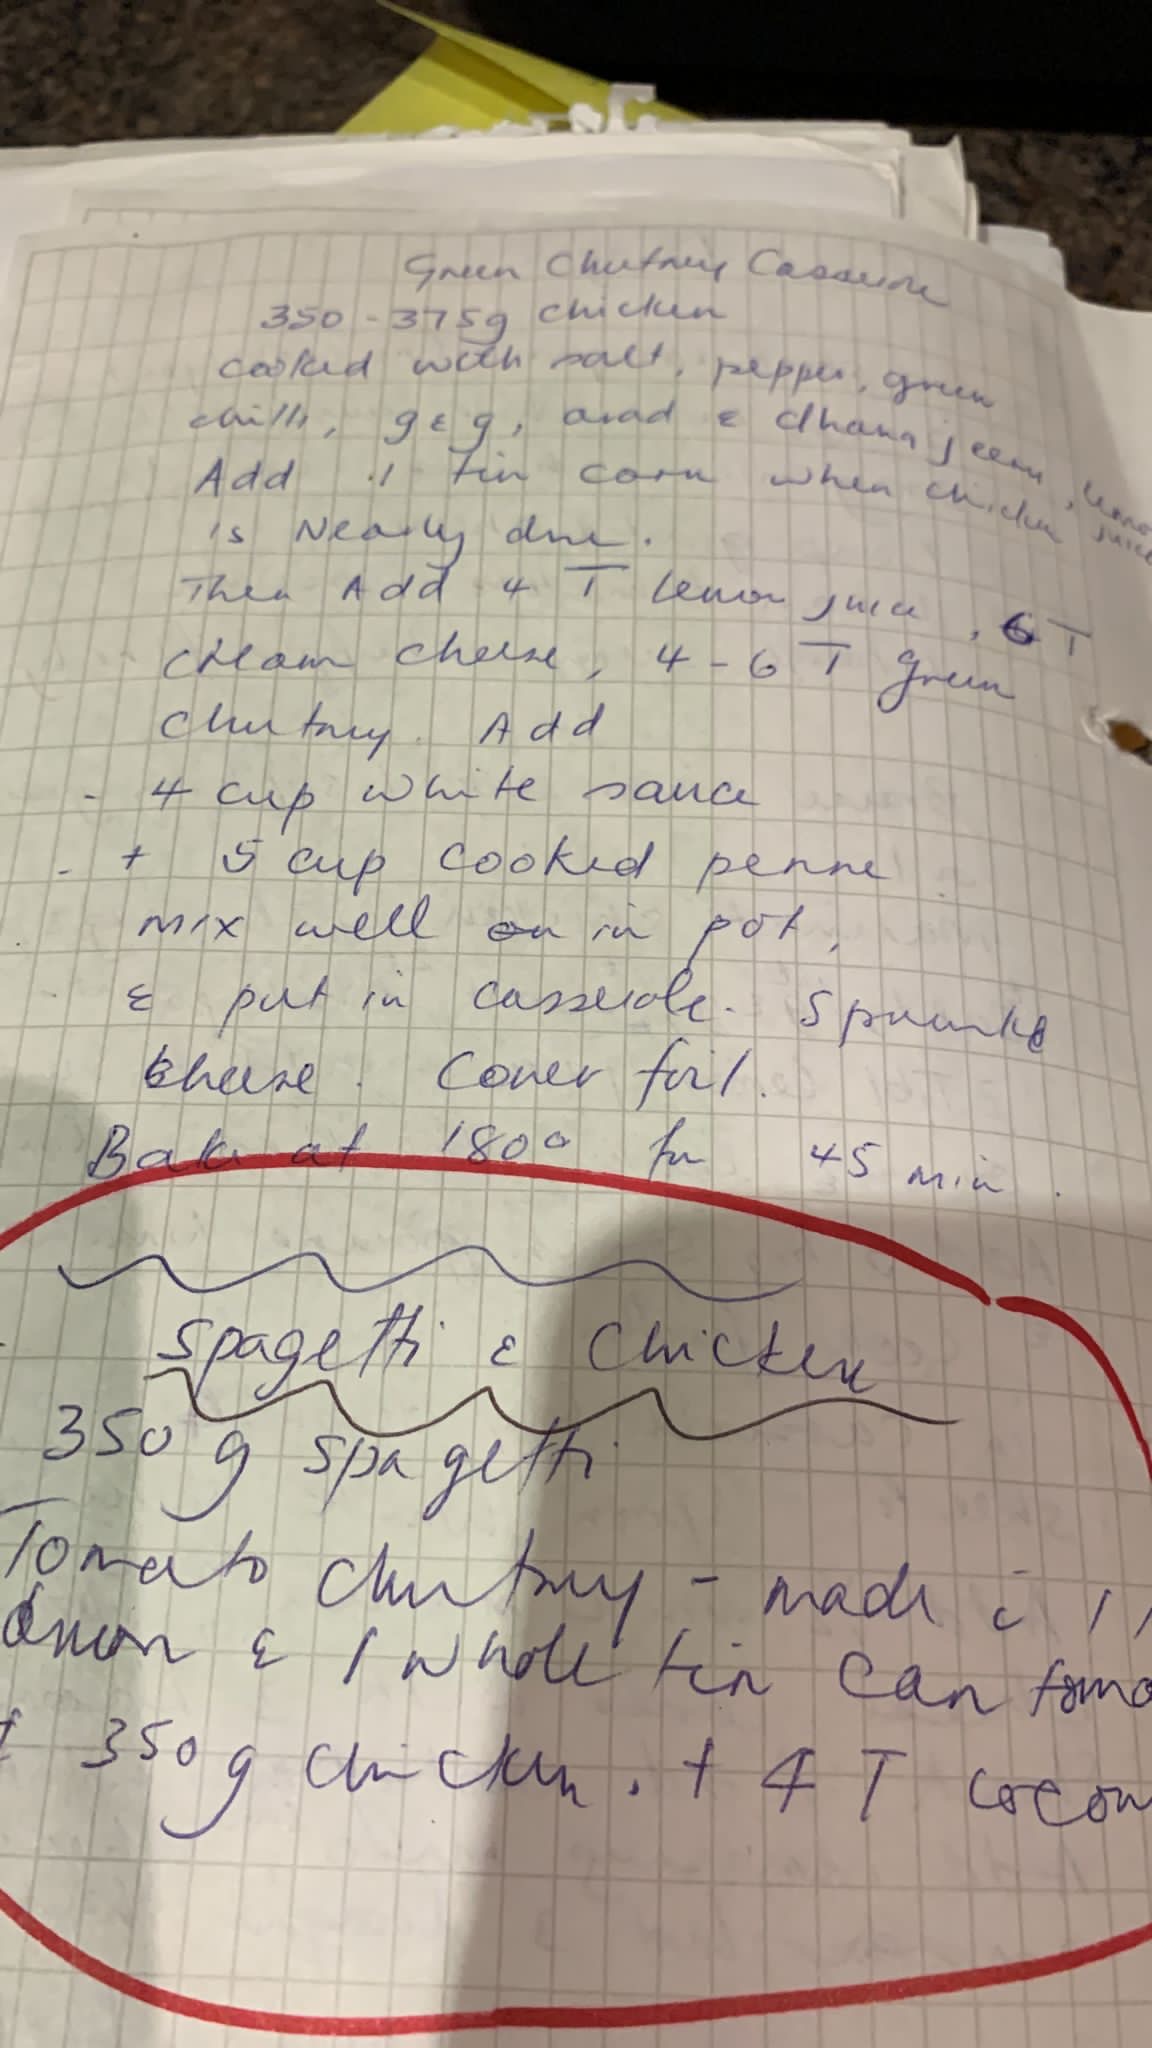 Green Chutney Casserole
350-375g chicken
cooked with salt, pepper, green
chilli, g & g, arad & dhana jeeru, lemon
juice
Add 1 tin corn when chicken
is Nearly done.
Then Add 4 T lemon juice, 6 T
cream cheese, 4-6 T green
chutney. Add
- 4 cup white sauce
- + 5 cup cooked penne
mix well in pot,
& put in casserole. Sprinkle
cheese. Cover foil.
Bake at 180° for 45 min.
Spagetti & Chicken
350 g spagetti
Tomato chutney - made c 1
onion & 1 whole tin can toma
+ 350g chicken. + 4 T cocon